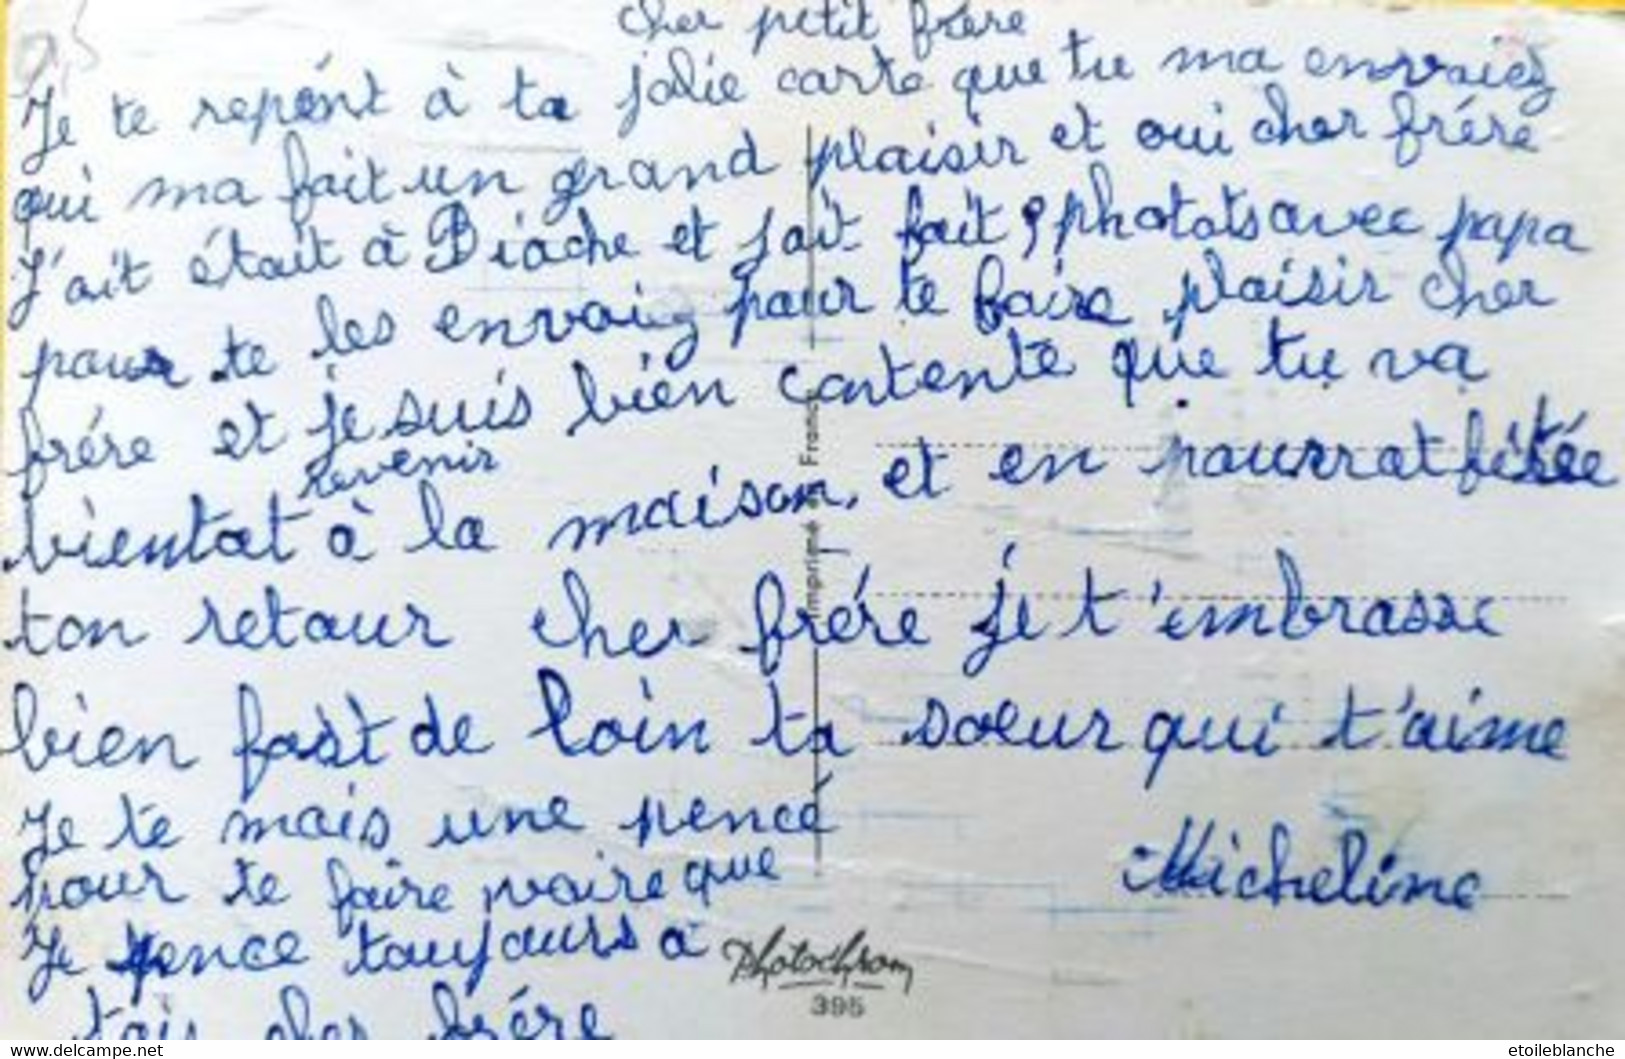 cher petit frère
Je te repént à ta jolie carte que tu ma envoiez
qui ma fait un grand plaisir et oui cher frére
J'ait était à Biache et jait fait 9 photots avec papa
pour te les envoiez pour te faire plaisir cher
frére et je suis bien contente que tu va
revenir
bientot à la maison, et en pourrat fétée
ton retour cher frére je t'embrasse
bien fort de loin ta soeur qui t'aime
Je te mais une pencé
pour te faire voire que
Micheline
Je pence toujours a
tois cher frére
Imprimé en France
Photochrom
395
www.delcampe.net
etoileblanche